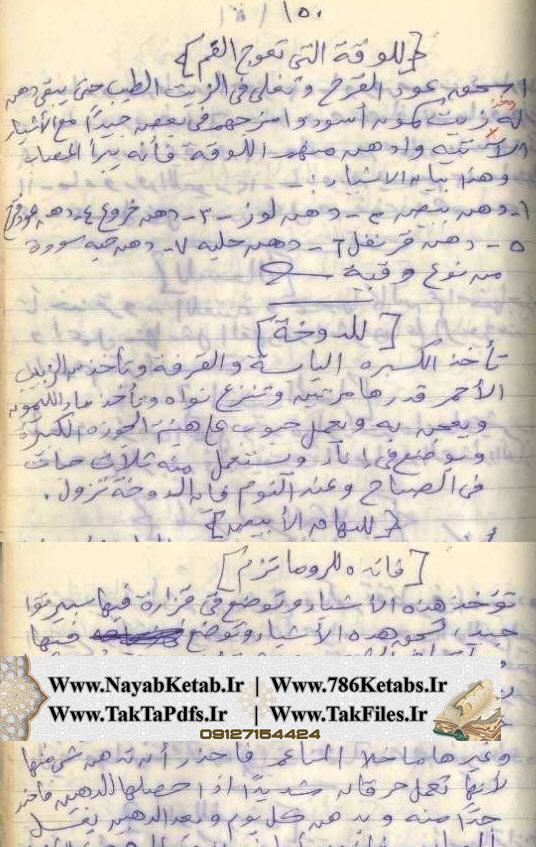 ١٥٠
{للوقة التي تعوج الفم}
اسحق عود القرح وتغلى في الزيت الطيب حتى يبقى دهن
له زيت كمون أسود وامزجهم في بعض جيداً مع الأشياء
الآتية وادهن منهم اللوقة فأنه يبرأ المصاب
وهذا بيان الأشياء :ـ
١ـ دهن بيض ٢ـ دهن لوز ـ ٣ـ دهن خروع ٤ـ دهن
٥ـ دهن قرنفل ٦ـ دهن حلبه ٧ـ دهن حبه سوده
من نوع وقية
[للدوخة]
تأخذ الكسبره اليابسة والقرفة وتأخذ من الزبيب
الأحمر قدرها مرتين وتنزع نواه وتأخذ ماء الليمون
ويعجن به ويعمل حبوب على هيئة الجوزه الكبيرة
وتوضع في اناء ويستعمل منه ثلاث حبات
في الصباح وعند النوم فإن الدوخة تزول.
{للبهاق الأبيض}
[فائده للروماتزم]
تؤخذ هذه الأشياء وتوضع في قزازة فيها سبرتوا
جيد، تسحق هذه الأشياء وتوضع فيها
Www.NayabKetab.Ir | Www.786Ketabs.Ir
Www.TakTaPdfs.Ir | Www.TakFiles.Ir
09127154424
وغيرها ماخلا المشاعر فاحذر أن تدهن شئ منها
لأنها تعمل حرقان شديداً اذا حصلها الدهن فاحذر
جداً منه ويدهن كل يوم وبعد الدهن يغسل